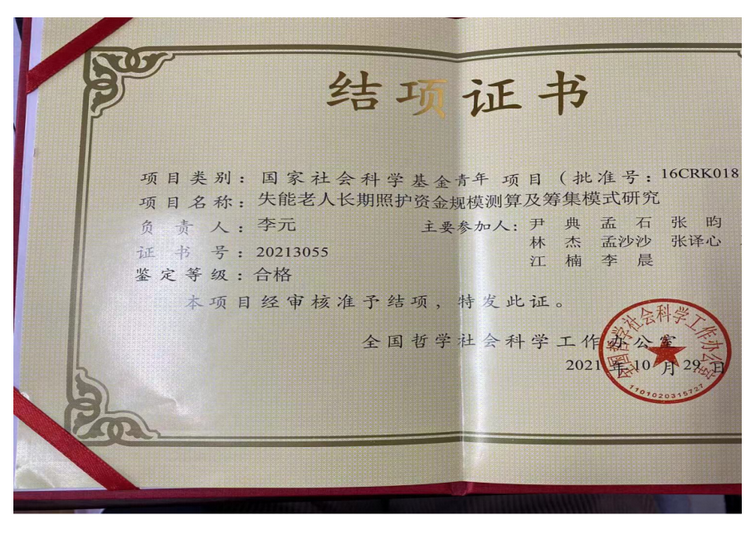 结项证书
项目类别：国家社会科学基金青年 项目（批准号：16CRK018
项目名称：失能老人长期照护资金规模测算及筹集模式研究
负责人：李元 主要参加人：尹典 孟石 张昀
林杰 孟沙沙 张译心
证书号：20213055
江楠 李晨
鉴定等级：合格
本项目经审核准予结项，特发此证。
全国哲学社会科学工作办公室
2021年10月29日
全国哲学社会科学工作办公室
1101020315727